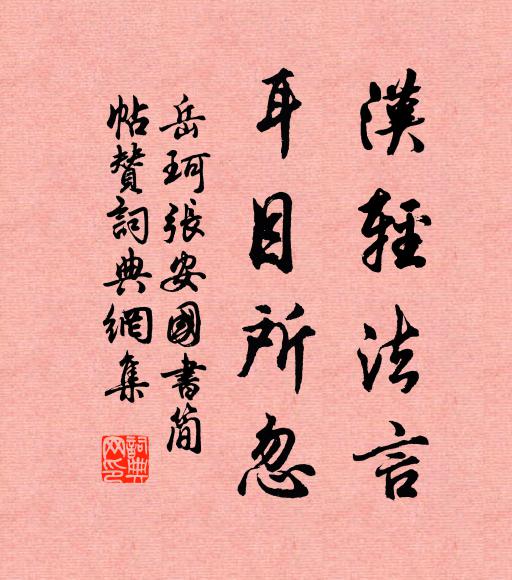 漢輕法言
耳目所忽
岳珂張安國書簡
帖贊詞典網集
詞典網印